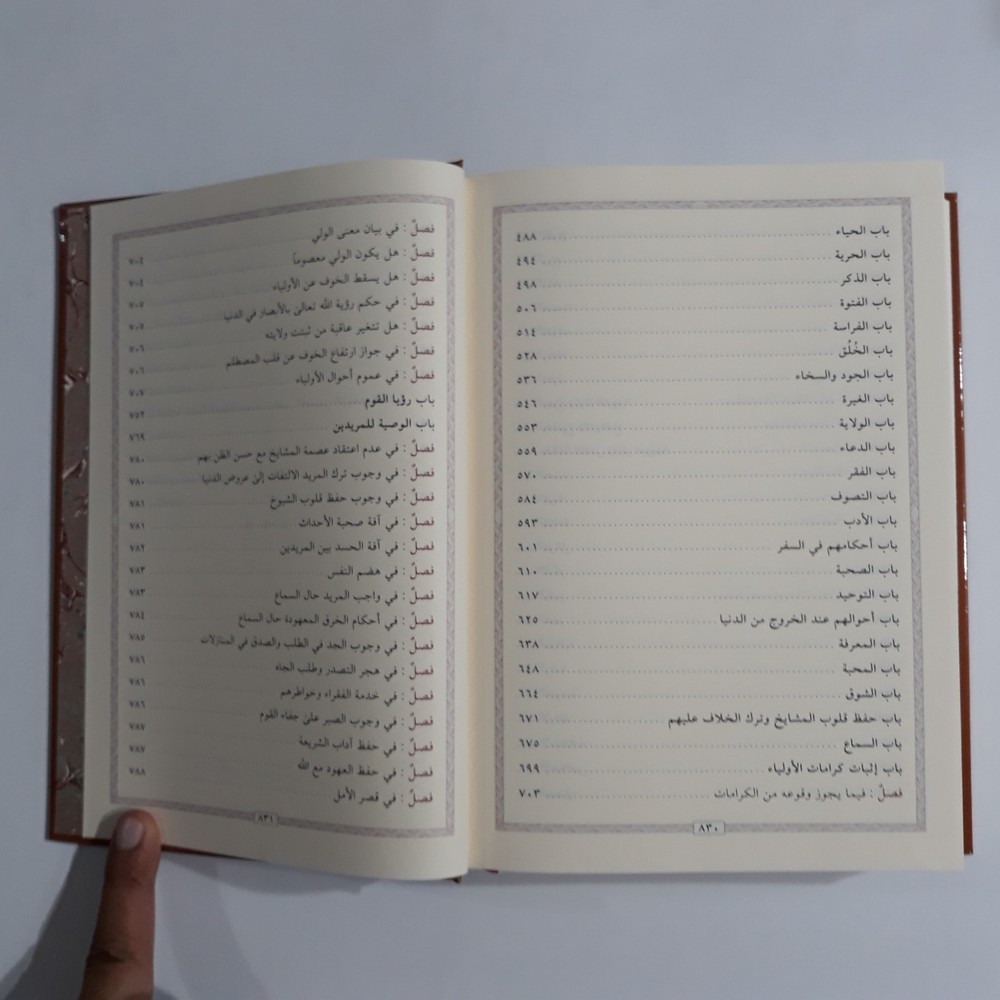 باب الحياء ٤٨٨
باب الحرية ٤٩٤
باب الذكر ٤٩٨
باب الفتوة ٥٠٦
باب الفراسة ٥١٤
باب الخُلُق ٥٢٨
باب الجود والسخاء ٥٣٦
باب الغيرة ٥٤٦
باب الولاية ٥٥٣
باب الدعاء ٥٥٩
باب الفقر ٥٧٠
باب التصوف ٥٨٤
باب الأدب ٥٩٣
باب أحكامهم في السفر ٦٠١
باب الصحبة ٦١٠
باب التوحيد ٦١٧
باب أحوالهم عند الخروج من الدنيا ٦٢٥
باب المعرفة ٦٣٨
باب المحبة ٦٤٨
باب الشوق ٦٦٤
باب حفظ قلوب المشايخ وترك الخلاف عليهم ٦٧١
باب السماع ٦٧٥
باب إثبات كرامات الأولياء ٦٩٩
فصلٌ : فيما يجوز وقوعه من الكرامات ٧٠٣
٨٣٠
فصلٌ : في بيان معنى الولي ٧٠٤
فصلٌ : هل يكون الولي معصوماً ٧٠٤
فصلٌ : هل يسقط الخوف عن الأولياء ٧٠٥
فصلٌ : في حكم رؤية الله تعالى بالأبصار في الدنيا ٧٠٥
فصلٌ : هل تتغير عاقبة من ثبتت ولايته ٧٠٦
فصلٌ : في جواز ارتفاع الخوف عن قلب المصطلم ٧٠٦
فصلٌ : في عموم أحوال الأولياء ٧٠٧
باب رؤيا القوم ٧٥٢
باب الوصية للمريدين ٧٦٩
فصلٌ : في عدم اعتقاد عصمة المشايخ مع حسن الظن بهم ٧٨٠
فصلٌ : في وجوب ترك المريد الالتفات إلى عروض الدنيا ٧٨٠
فصلٌ : في وجوب حفظ قلوب الشيوخ ٧٨١
فصلٌ : في آفة صحبة الأحداث ٧٨١
فصلٌ : في آفة الحسد بين المريدين ٧٨٢
فصلٌ : في هضم النفس ٧٨٣
فصلٌ : في واجب المريد حال السماع ٧٨٣
فصلٌ : في أحكام الخرق المعهودة حال السماع ٧٨٤
فصلٌ : في وجوب الجد في الطلب والصدق في المنازلات ٧٨٥
فصلٌ : في هجر التصدر وطلب الجاه ٧٨٦
فصلٌ : في خدمة الفقراء وخواطرهم ٧٨٦
فصلٌ : في وجوب الصبر على جفاء القوم ٧٨٦
فصلٌ : في حفظ آداب الشريعة ٧٨٧
فصلٌ : في حفظ العهود مع الله ٧٨٧
فصلٌ : في قصر الأمل ٧٨٨
٨٣١